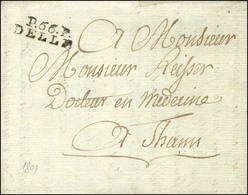 P.66.P.
DELLE
A Monsieur
Monsieur Reisser
Docteur en Medecine
A Thann
1809